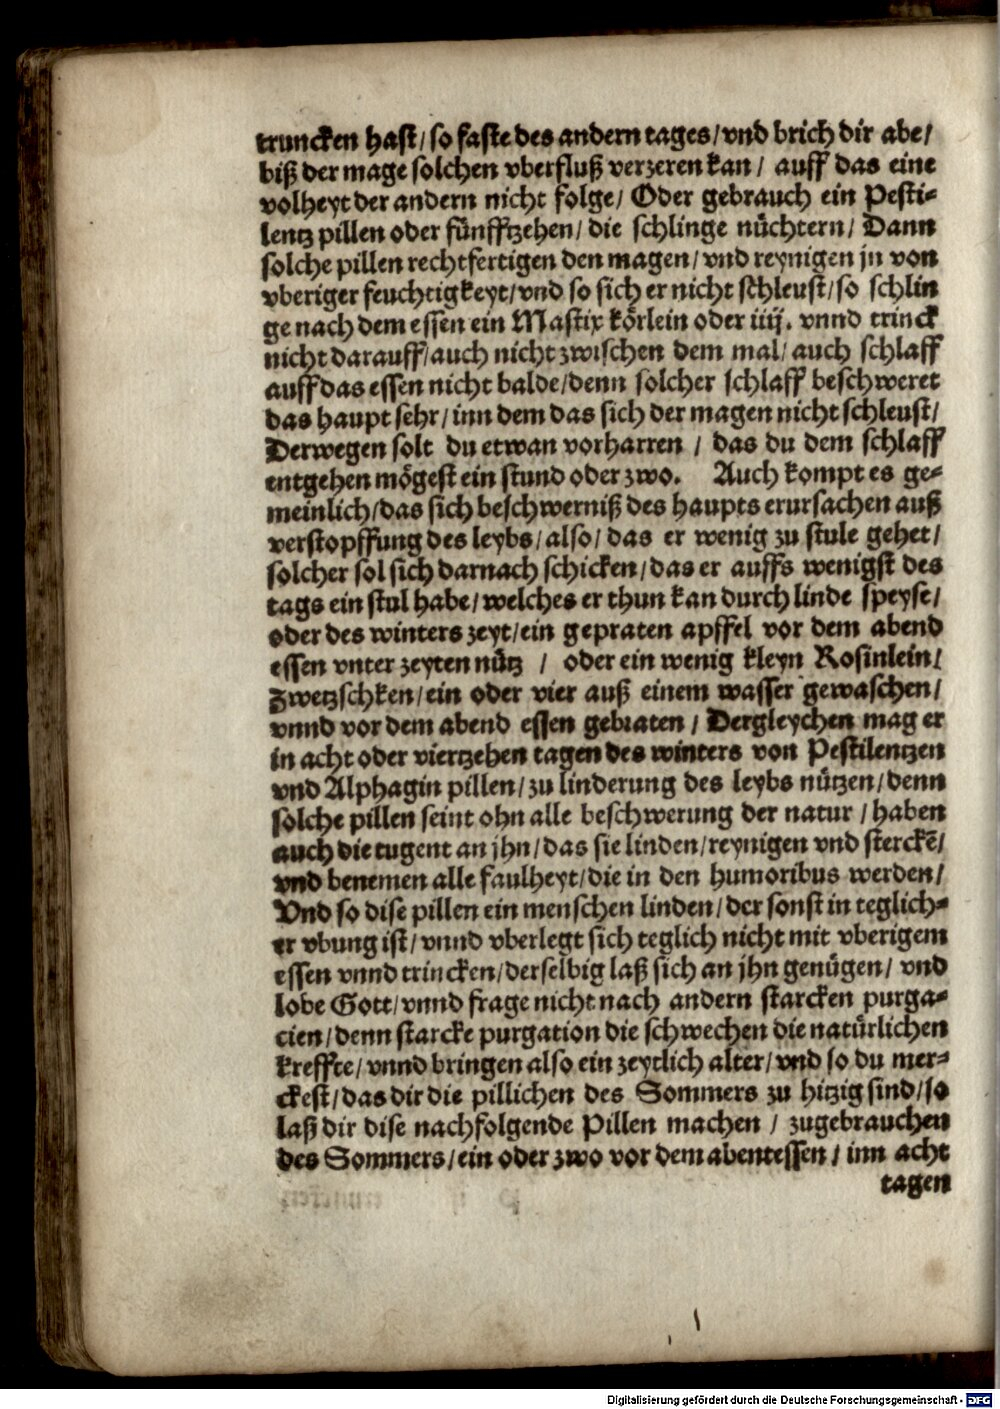 truncken hast/so faste des andern tages/vnd brich dir abe/
biß der mage solchen vberfluß verzeren kan/ auff das eine
volheyt der andern nicht folge/ Oder gebrauch ein Pesti-
lentz pillen oder fünfftzehen/ die schlinge nüchtern/ Dann
solche pillen rechtfertigen den magen/ vnd reynigen jn von
vberiger feuchtigkeyt/vnd so sich er nicht schleust/so schlin
ge nach dem essen ein Mastix körlein oder iiij. vnnd trinck
nicht darauff/auch nicht zwischen dem mal/ auch schlaff
auff das essen nicht balde/denn solcher schlaff beschweret
das haupt sehr/inn dem das sich der magen nicht schleust/
Derwegen solt du etwan vorharren / das du dem schlaff
entgehen mögest ein stund oder zwo. Auch kompt es ge-
meinlich/das sich beschwerniß des haupts erursachen auß
verstopffung des leybs/also/das er wenig zu stule gehet/
solcher sol sich darnach schicken/das er auffs wenigst des
tags ein stul habe/welches er thun kan durch linde speyse/
oder des winters zeyt/ein gepraten apffel vor dem abend
essen vnter zeyten nütz / oder ein wenig kleyn Rosinlein/
Zwetzschken/ein oder vier auß einem wasser gewaschen/
vnnd vor dem abend essen gebraten/ Dergleychen mag er
in acht oder viertzehen tagen des winters von Pestilentzen
vnd Alphagin pillen/zu linderung des leybs nützen/denn
solche pillen seint ohn alle beschwerung der natur /haben
auch die tugent an jhn/das sie linden/reynigen vnd sterckẽ/
vnd benemen alle faulheyt/die in den humoribus werden/
Vnd so dise pillen ein menschen linden/der sonst in teglich-
er vbung ist/vnnd vberlegt sich teglich nicht mit vberigem
essen vnnd trincken/derselbig laß sich an jhn genügen/ vnd
lobe Gott/vnnd frage nicht nach andern starcken purga-
cien/denn starcke purgation die schwechen die natürlichen
kreffte/vnnd bringen also ein zeytlich alter/vnd so du mer-
ckest/das dir die pillichen des Sommers zu hitzig sind/so
laß dir dise nachfolgende Pillen machen / zugebrauchen
des Sommers/ein oder zwo vor dem abentessen/inn acht
tagen
Digitalisierung gefördert durch die Deutsche Forschungsgemeinschaft - DFG